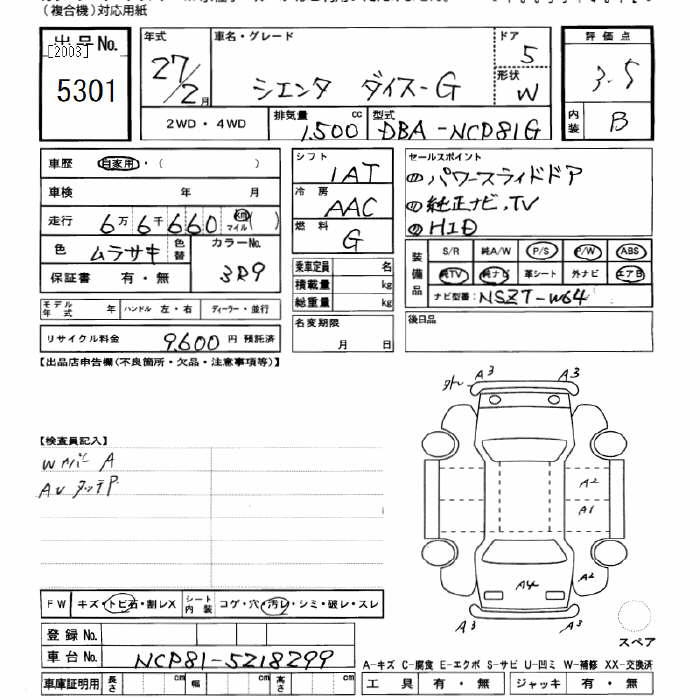 (複合機)対応用紙
出品No.
[2003]
5301
年式 27/2月
車名・グレード シエンタ ダイス-G
ドア 5
形状 W
評価点 3.5
内装 B
2WD・4WD
排気量 1,500 cc
型式 DBA-NCP81G
車歴 自家用・( )
車検 年 月
走行 6万6千660 km マイル ( )
色 ムラサキ 色替 カラーNo. 3R9
保証書 有・無
シフト IAT
冷房 AAC
燃料 G
乗車定員 名
積載量 kg
総重量 kg
セールスポイント
① パワースライドドア
② 純正ナビ、TV
③ HID
装備品 S/R 純A/W P/S P/W ABS
純TV 純ナビ 革シート 外ナビ エアB
ナビ型番: NSZT-W64
モデル年式 年 ハンドル 左・右 ディーラー・並行
名変期限 月 日
後日品
リサイクル料金 9,600円 預託済
【出品店申告欄(不良箇所・欠品・注意事項等)】
A3 A3
【検査員記入】
A
A2
A1
A2
A4
A3 A3
FW キズ・トビ石・割レX シート内装 コゲ・穴・汚レ・シミ・破レ・スレ
スペア
登録No.
車台No. NCP81-5218299
A-キズ C-腐食 E-エクボ S-サビ U-凹ミ W-補修 XX-交換済
車庫証明用 長さ cm 幅 cm 高さ cm
工具 有・無 ジャッキ 有・無